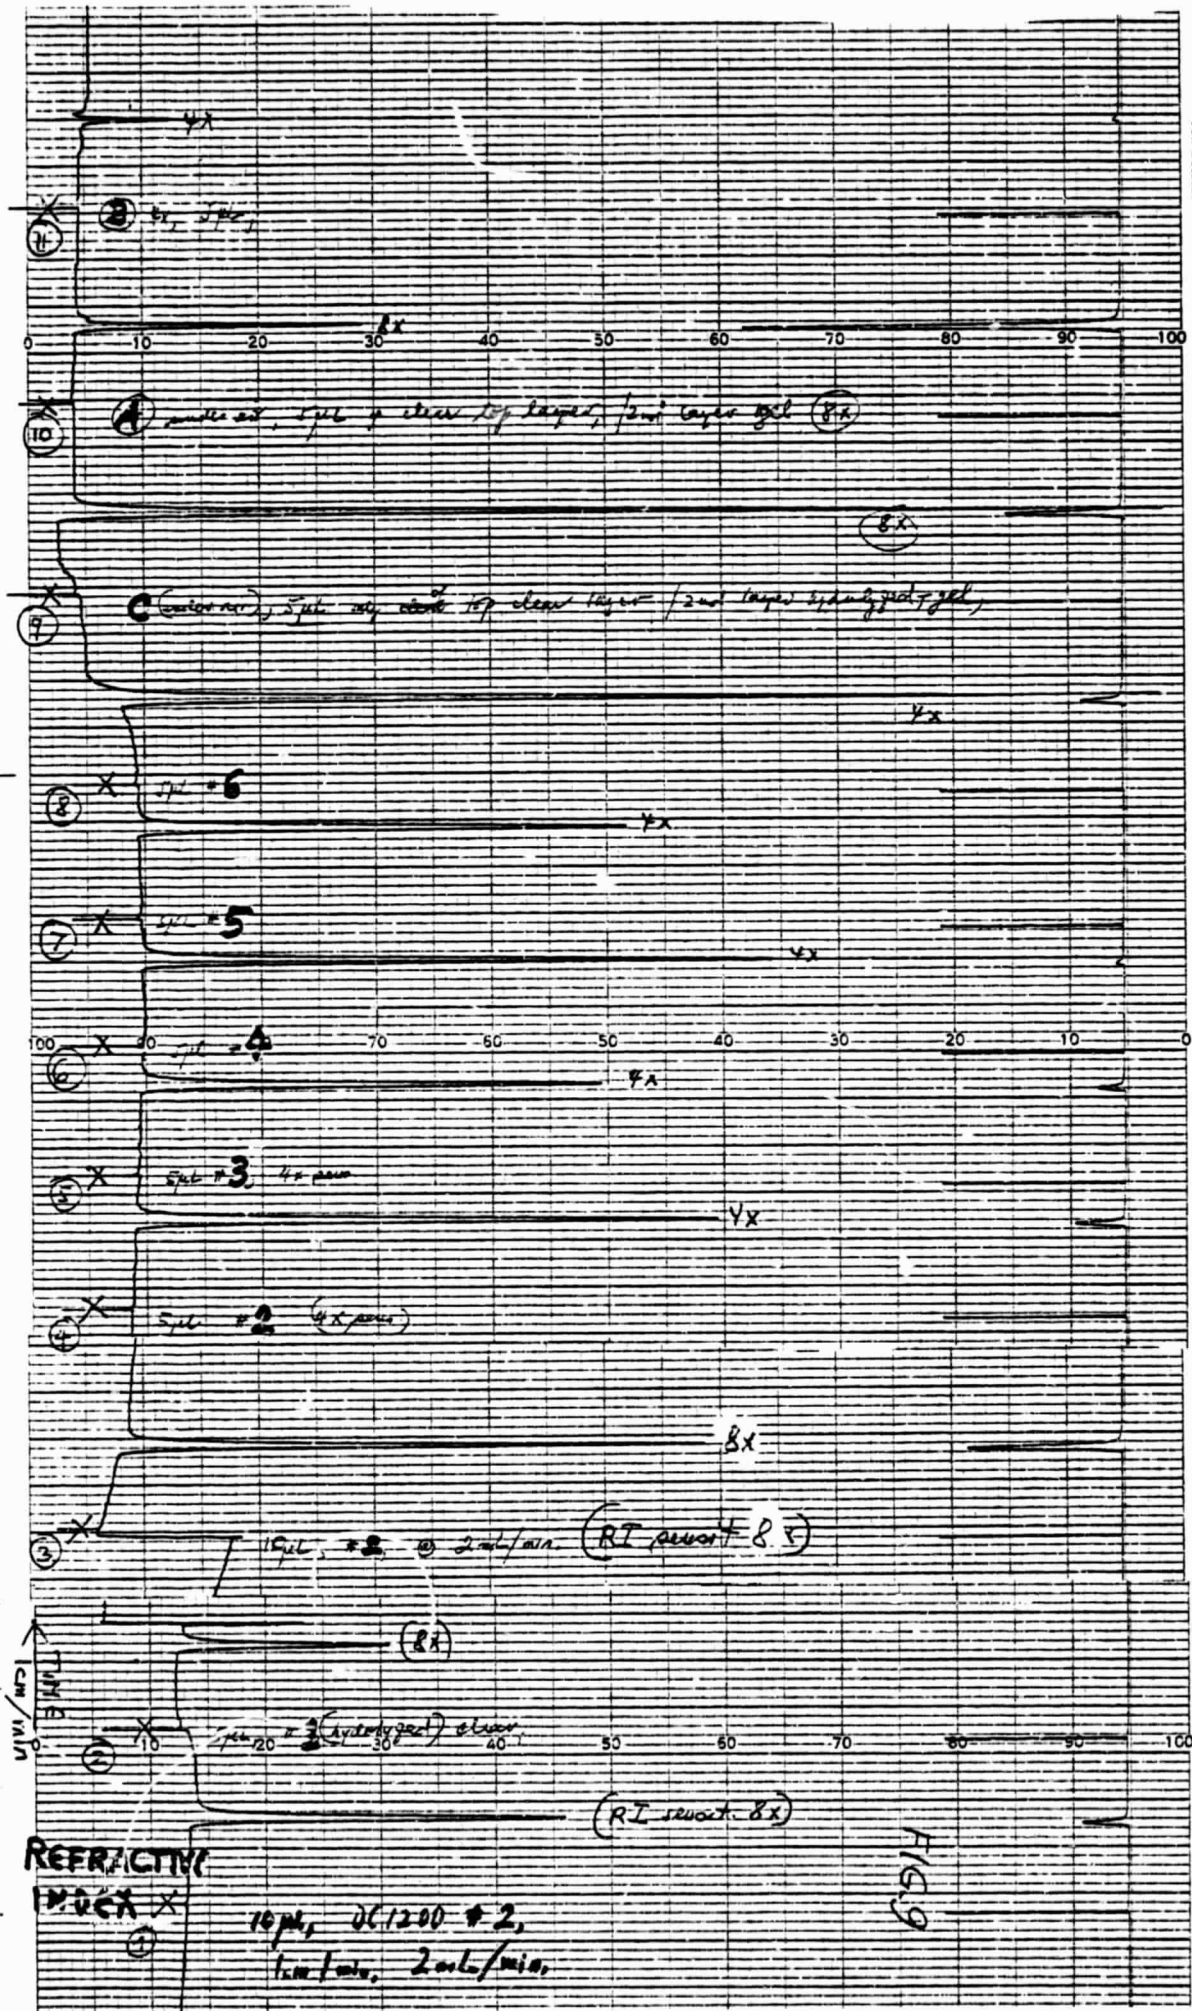 4X
11
2 4x, 5µL,
8X
0 10 20 30 40 50 60 70 80 90 100
10
5µL clear top layer, /2nd layer gel 8X
8X
9
C 5µL top clear layer /2nd layer gel,
4X
8
5µL #6
4X
7
5µL #5
4X
100 90 70 60 50 40 30 20 10 0
6
5µL #4
4X
5
5µL #3, 4x
4X
4
5µL #2 (4x sens)
8X
3
#2, @ 2mL/min. (RI sensit 8X)
(8X)
TIME
1cm/min
2
5µL #2 (hydrolyzed) clear.
0 10 20 30 40 50 60 70 80 90 100
(RI sensit. 8X)
REFRACTIVE
INDEX X
1
FIG.9
10µL, DC1200 #2,
1cm/min, 2mL/min.